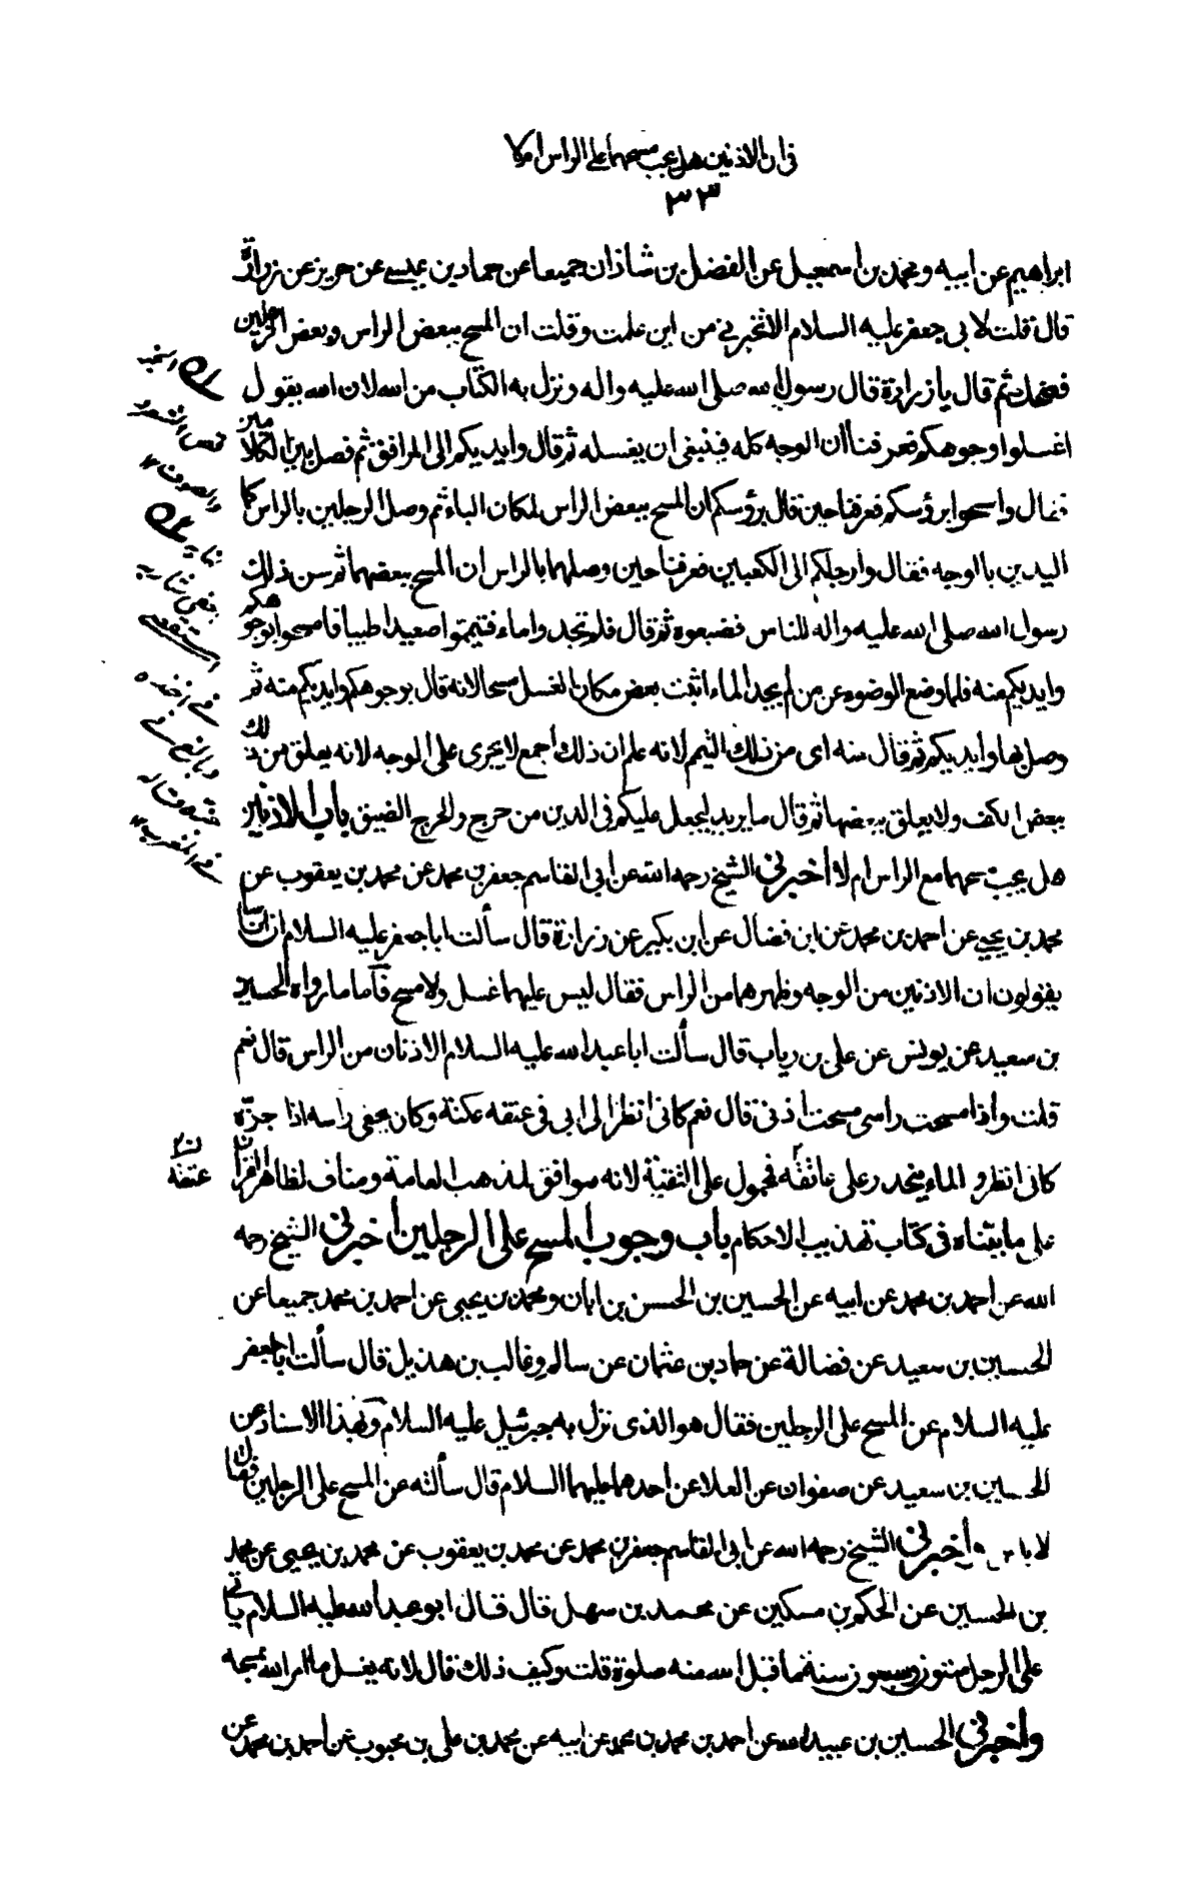 في ان الاذنين هل يجب مسحهما على الراس ام لا
٣٣
ابراهيم عن ابيه ومحمد بن اسمعيل عن الفضل بن شاذان جميعا عن حماد بن عيسى عن حريز عن زرارة
قال قلت لابى جعفر عليه السلام الا تخبرني من اين علمت وقلت ان المسح ببعض الراس وبعض الرجلين
فضحك ثم قال يا زرارة قال رسول الله صلى الله عليه واله ونزل به الكتاب من الله لان الله يقول
اغسلوا وجوهكم فعرفنا ان الوجه كله فينبغى ان يغسله ثم قال وايديكم الى المرافق ثم فصل بين الكلامين
فقال وامسحوا برؤسكم فعرفنا حين قال برؤسكم ان المسح ببعض الراس لمكان الباء ثم وصل الرجلين بالراس كما
اليدين بالوجه فقال وارجلكم الى الكعبين فعرفنا حين وصلهما بالراس ان المسح ببعضهما ثم سن ذلك
رسول الله صلى الله عليه واله للناس فضيعوه ثم قال فلم تجدوا ماء فتيمموا صعيدا طيبا فامسحوا بوجوهكم
وايديكم منه فلما وضع الوضوء عن من لم يجد الماء اثبت بعض مكان الغسل مسحا لانه قال بوجوهكم وايديكم منه ثم
وصل بها وايديكم ثم قال منه اى من ذلك التيمم لانه علم ان ذلك اجمع لا يجرى على الوجه لانه يعلق من ذلك
ببعض الكف ولا يعلق ببعضها ثم قال ما يريد ليجعل عليكم فى الدين من حرج والحرج الضيق باب الاذنين
هل يجب مسحهما مع الراس ام لا اخبرني الشيخ رحمه الله عن ابى القاسم جعفر بن محمد عن محمد بن يعقوب عن
محمد بن يحيى عن احمد بن محمد عن ابن فضال عن ابن بكير عن زرارة قال سألت ابا جعفر عليه السلام ان اناسا
يقولون ان الاذنين من الوجه وظهرهما من الراس فقال ليس عليهما غسل ولا مسح فاما ما رواه الحسين
بن سعيد عن يونس عن على بن رياب قال سألت ابا عبد الله عليه السلام الاذنان من الراس قال نعم
قلت واذا مسحت راسى مسحت اذنى قال نعم كانى انظر الى ابى فى عنقه عكنة وكان يحفى راسه اذا جزه
كانى انظر والماء ينحدر على عاتقه فمحمول على التقية لانه موافق لمذهب العامة ومناف لظاهر القران
على ما بيناه فى كتاب تهذيب الاحكام باب وجوب المسح على الرجلين اخبرني الشيخ رحمه
الله عن احمد بن محمد عن ابيه عن الحسين بن الحسن بن ابان ومحمد بن يحيى عن احمد بن محمد جميعا عن
الحسين بن سعيد عن فضالة عن حماد بن عثمان عن سالم وغالب بن هذيل قال سألت ابا جعفر
عليه السلام عن المسح على الرجلين فقال هو الذى نزل به جبرئيل عليه السلام وبهذا الاسناد عن
الحسين بن سعيد عن صفوان عن العلا عن احدهما عليهما السلام قال سألته عن المسح على الرجلين فقال
لا باس واخبرني الشيخ رحمه الله عن ابى القاسم جعفر بن محمد عن محمد بن يعقوب عن محمد بن يحيى عن محمد
بن الحسين عن الحكم بن مسكين عن محمد بن سهل قال قال ابو عبد الله عليه السلام ياتى
على الرجل ستون وسبعون سنة ما قبل الله منه صلوة قلت وكيف ذلك قال لانه يغسل ما امر الله بمسحه
واخبرني الحسين بن عبيد الله عن احمد بن محمد بن محمد عن ابيه عن محمد بن على بن محبوب عن احمد بن محمد عن
قص الشعر
والصوف
ن
عنقه